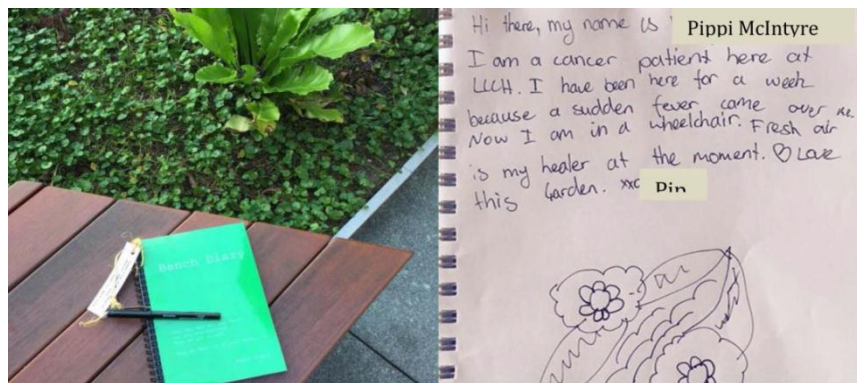 Bench Diary
Hi there, my name is Pippi McIntyre
I am a cancer patient here at
LCCH. I have been here for a week
because a sudden fever came over me.
Now I am in a wheelchair. Fresh air
is my healer at the moment. ♡ Love
this Garden. xxo Pip